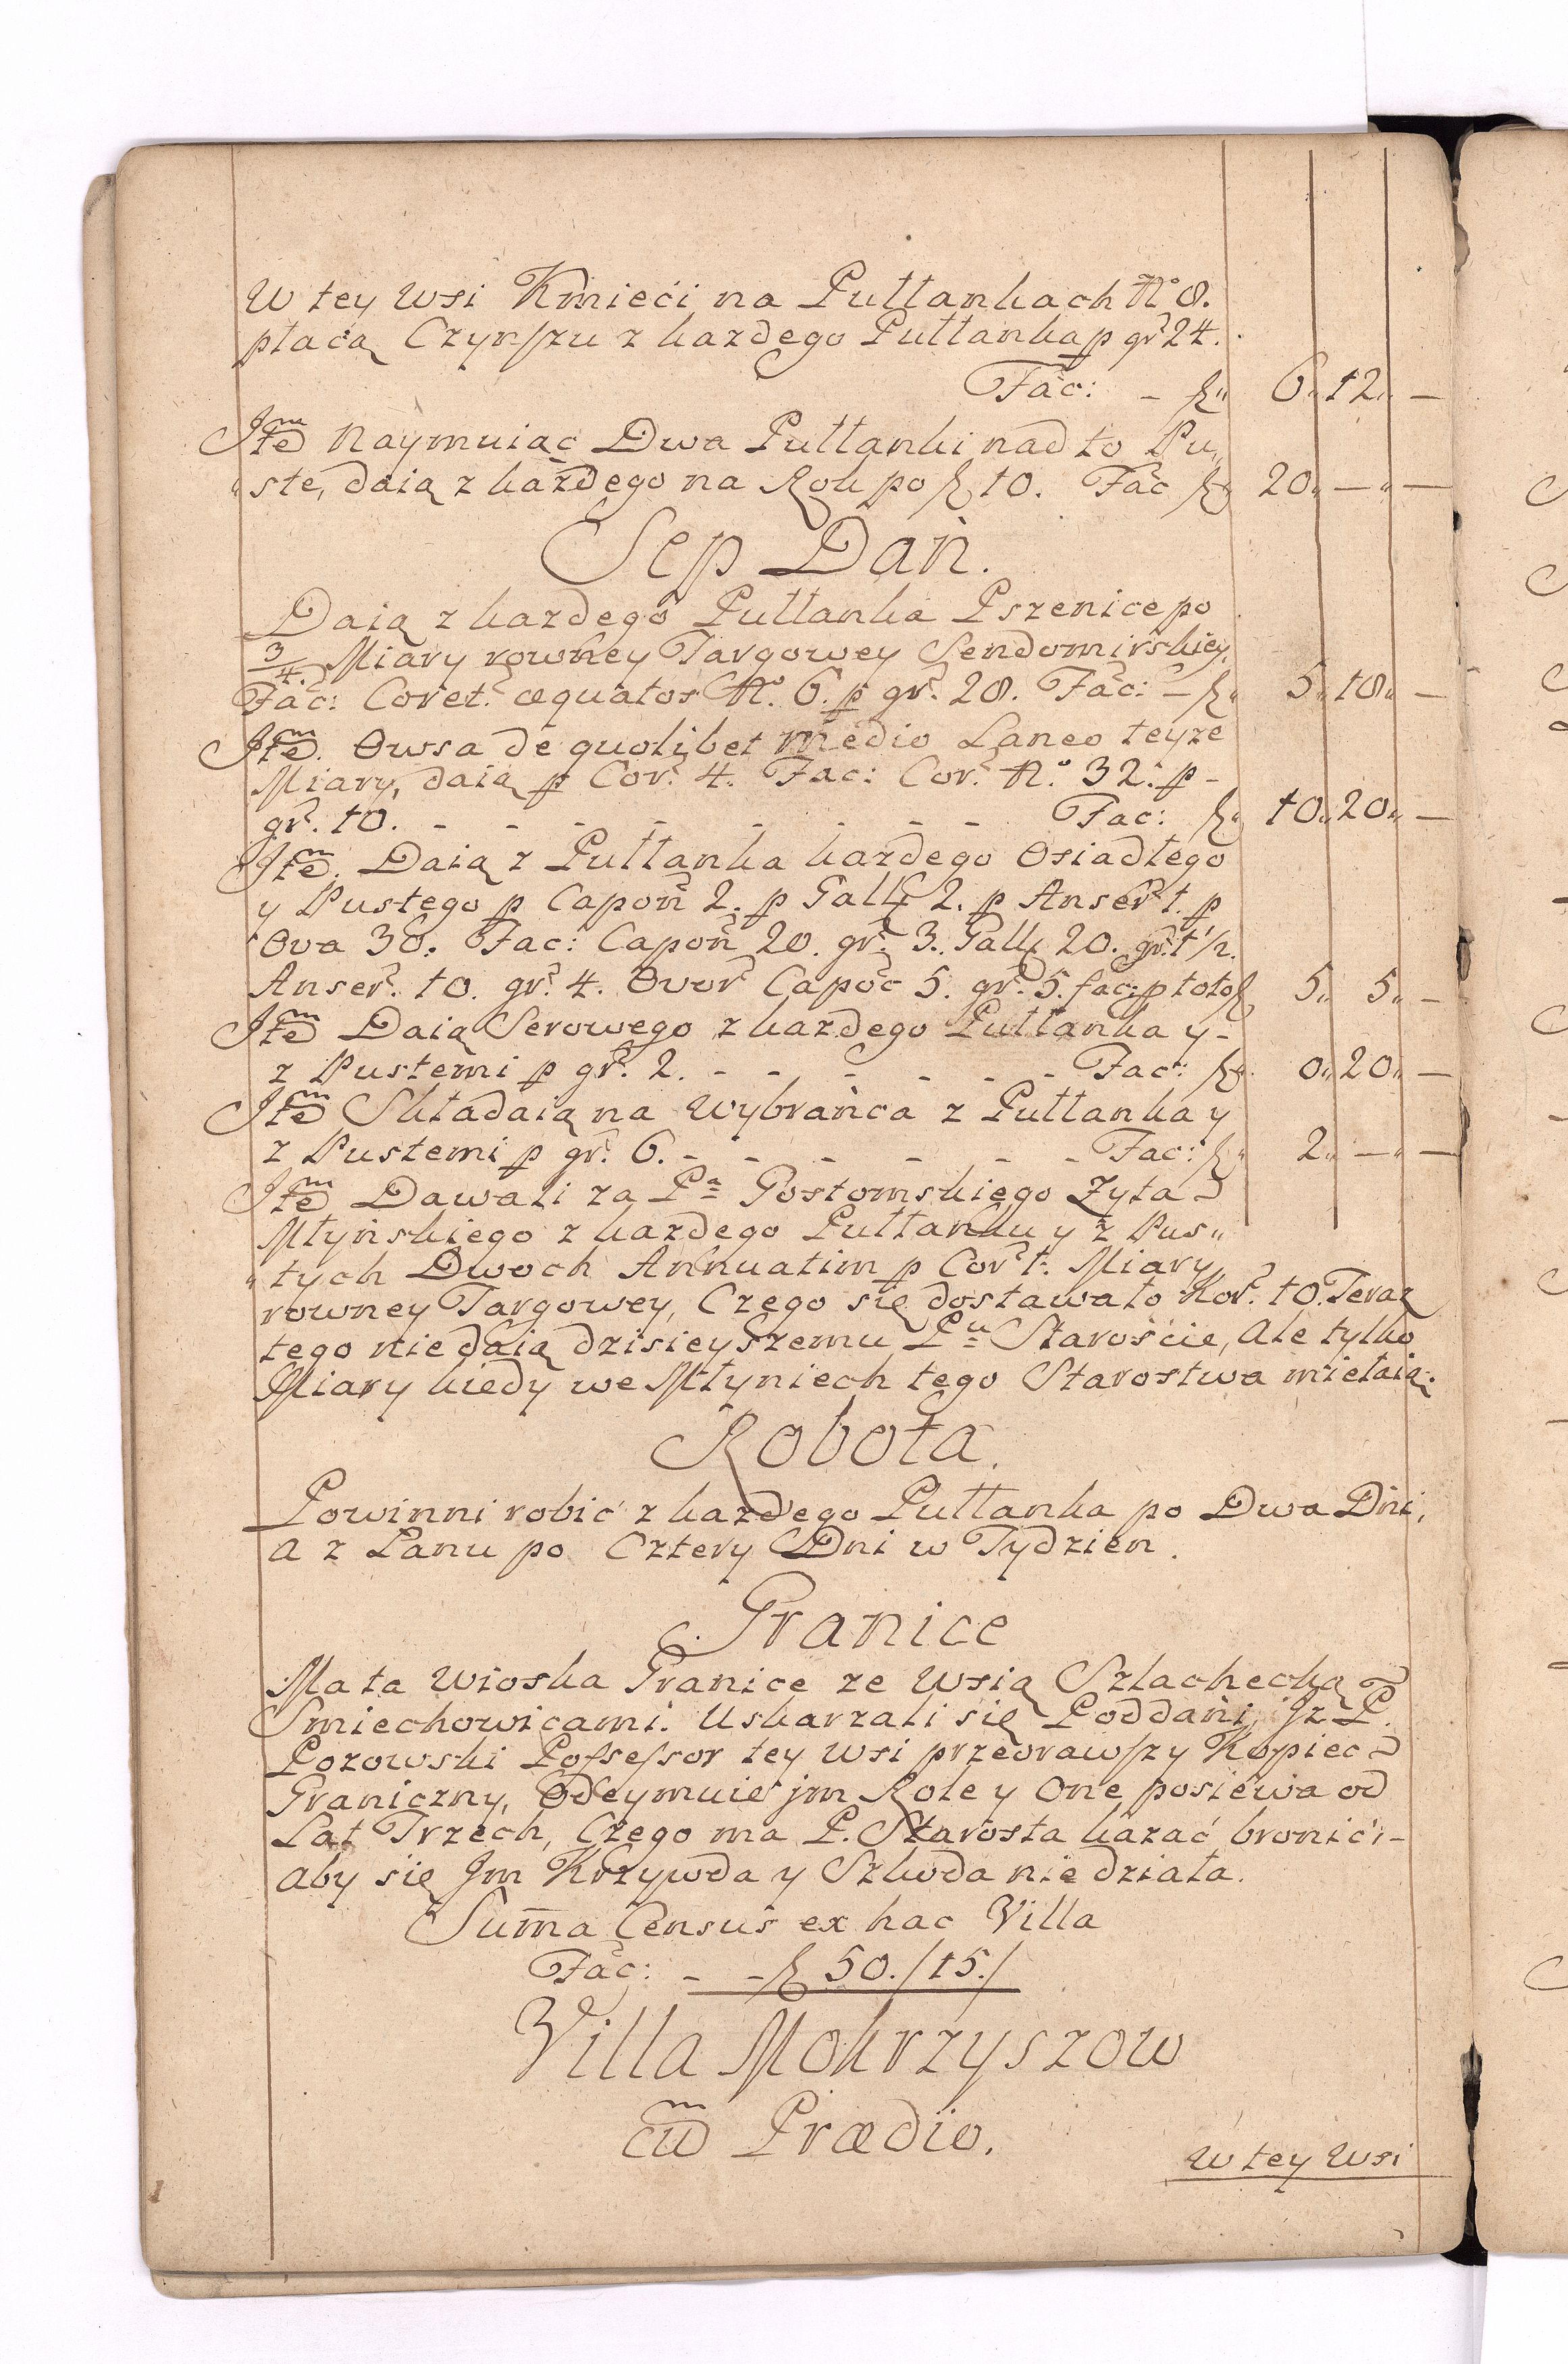 W tey Wsi Kmieći na Pułłankach No 8.
płacą Czynszu z każdego Pułłanka p gr 24.
Fac: - fl 6 12 —
Itẽm Naymuiąc Dwa Pułłanki nad to Pu„
„ste, daią z każdego na Rok po fl 10. Fac fl 20 — —
Sep Dań.
Daią z każdego Pułłanka Pszenice po
3/4. Miary rowney Targowey Sendomirskiey,
Fac: Coret. æquatos No. 6. p gr. 28. Fac: — fl 5 18 —
Itẽm. Owsa de quolibet medio Laneo teyże
Miary, daią p Cor. 4. Fac: Cor. No 32. p -
gr. 10. - - - - - - - - Fac: fl 10 20 —
Itẽm. Daią z Pułłanka każdego Osiadłego
y Pustego p Capoñ 2. p Gall 2. p Anser 1. p
Ova 30. Fac: Capoñ 20. gr. 3. Gall 20. gr. 1 1/2.
Anser. 10. gr. 4. Ovor Capoc 5. gr. 5. fac: p toto fl 5 5 —
Itẽm Daią Serowego z każdego Pułłanka y -
z Pustemi p gr. 2. - - - - - - Fac: fl 0 20 —
Itẽm Składaią na Wybrańca z Pułłanka y
z Pustemi p gr. 6. - - - - - - Fac: fl 2 — —
Itẽm Dawali za Pa Gostomskiego Żyta
Młyńskiego z każdego Pułłanku y z Pus„
„tych Dwoch Annuatim p Cor 1. Miary
rowney Targowey, Czego się dostawało Kor. 10. Teraz
tego nie daią dzisieyszemu Pu Starośćie, Ale tylko
Miary kiedy we Młyniech tego Starostwa mielaią.
Robota.
Powinni robić z każdego Pułłanka po Dwa Dni,
a z Łanu po Cztery Dni w Tydzien.
Granice
Ma ta Wioska Granice ze Wsią Szlachecką
Smiechowicami. Uskarzali się Poddani, Iz P.
Pozowski Possessor tey Wsi przeorawszy Kopiec
Graniczny, Odeymuie jm Role y One posiewa od
Lat Trzech, Czego ma P. Starosta kazać bronić, -
aby się Jm Krzywda y Szkoda nie działa.
Sum̃a Census ex hac Villa
Fac: - - fl 50./15./
Villa Mokrzyszow
cũm Prædio.
W tey Wsi